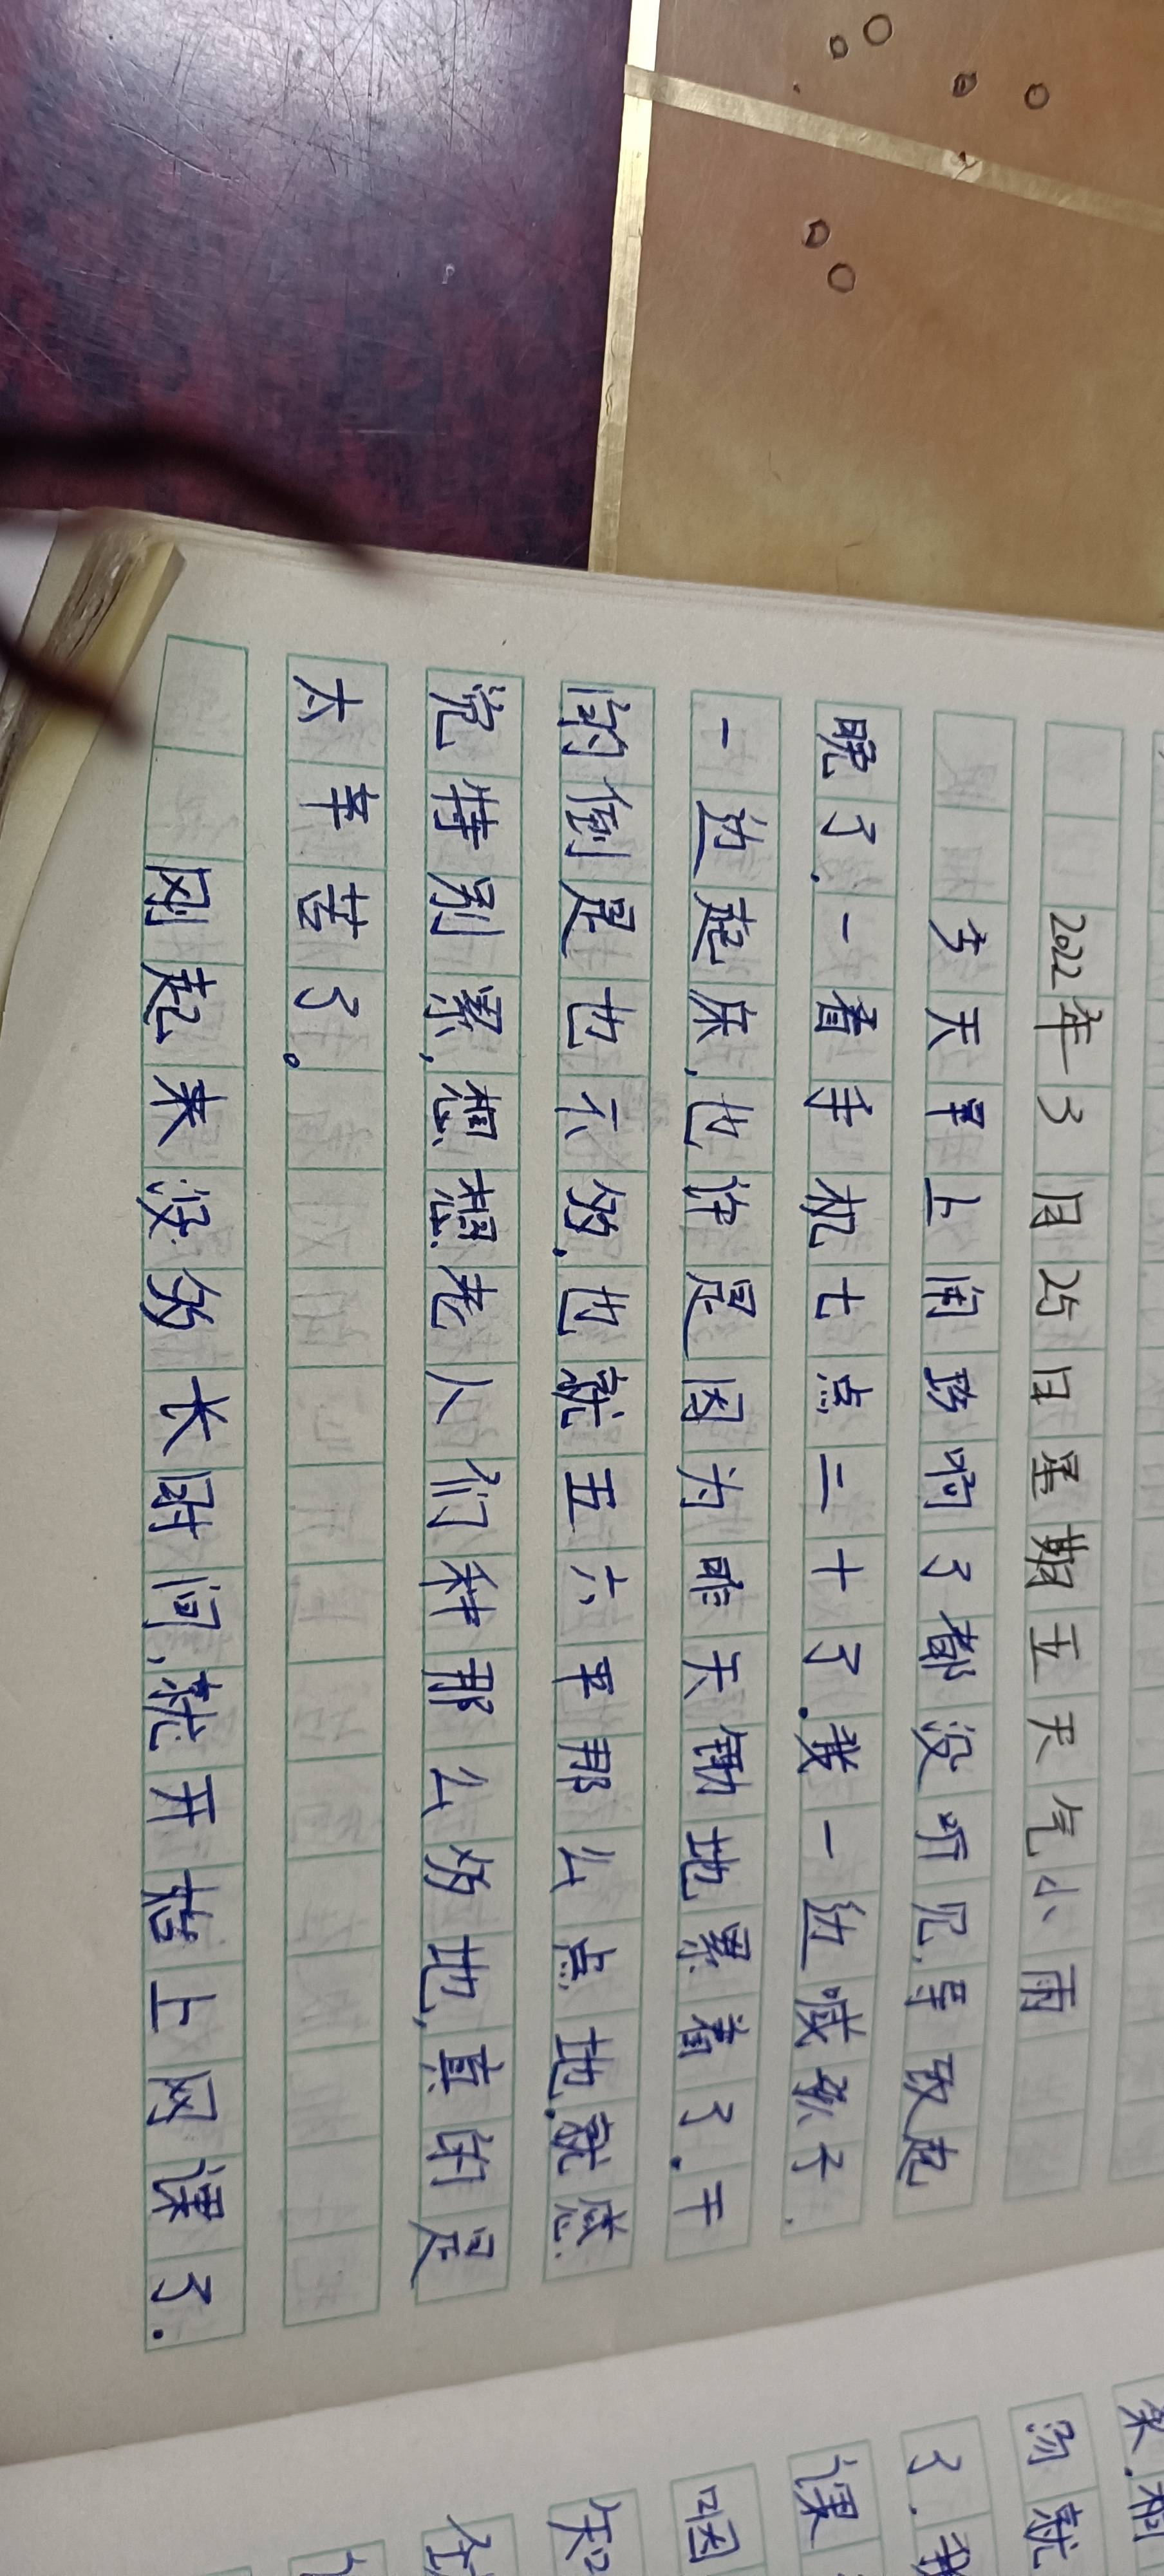 2022年3月25日星期五天气小雨
今天早上闹铃响了都没听见,导致起
晚了.一看手机七点二十了.我一边喊孩子.
一边起床,也许是因为昨天锄地累着了.干
的倒是也不多,也就五六平那么点地.就感
觉特别累,想想老人们种那么多地,真的是
太辛苦了。
刚起来没多长时间,就开始上网课了.
汤就
了.我
课
咽
知